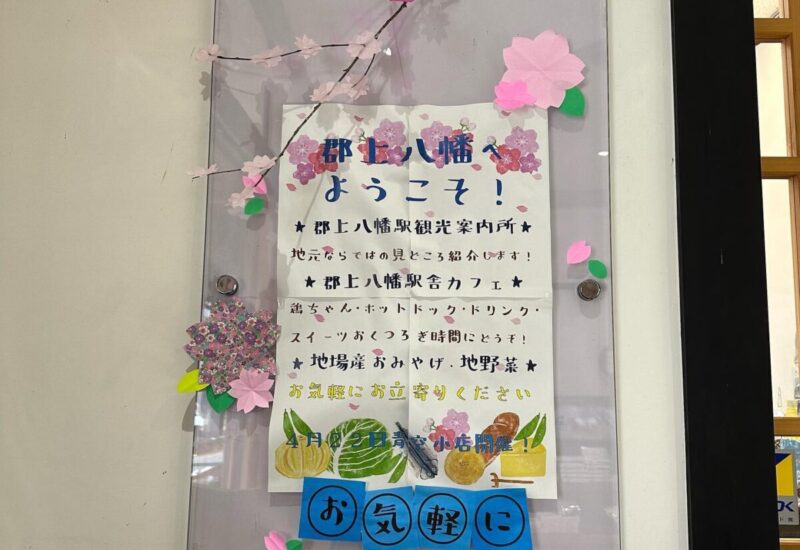 郡上八幡へ
ようこそ！
★郡上八幡駅観光案内所★
地元ならではの見どころ紹介します！
★郡上八幡駅舎カフェ★
鶏ちゃん・ホットドック・ドリンク・
スイーツおくつろぎ時間にどうぞ！
★地場産おみやげ・地野菜★
お気軽にお立寄りください
4月22日青空小店開催！
お気軽に